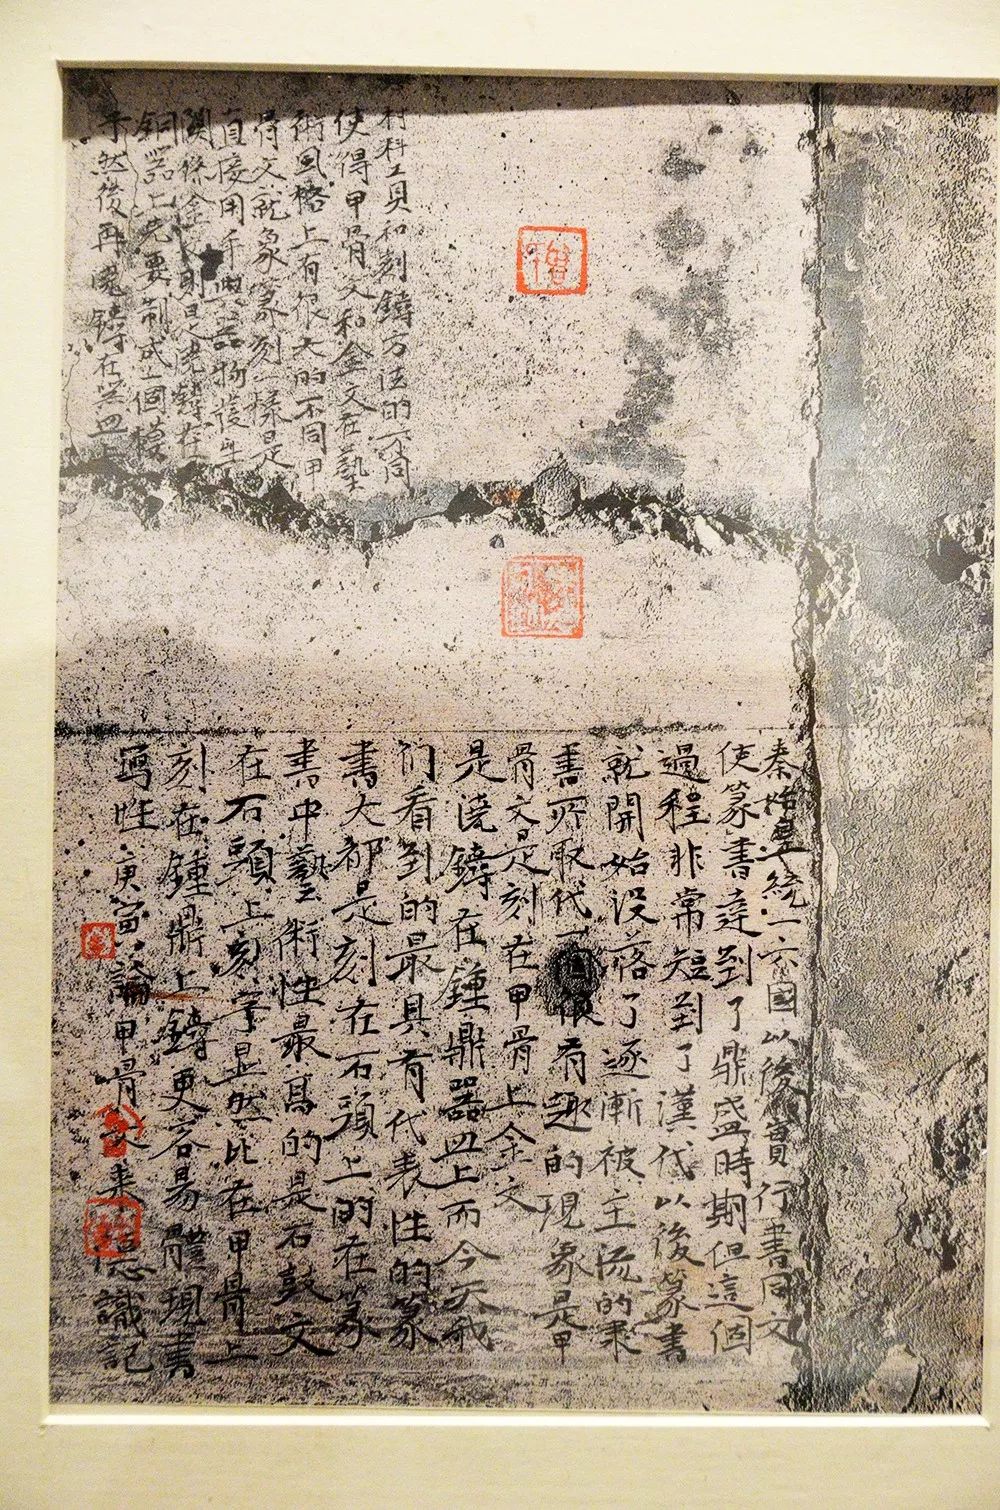 材料工具和刻鑄方法的不同
使得甲骨文和金文在藝
術風格上有很大的不同甲
骨文就象篆刻一樣是
直接用手與器物發生
關係金文則是先鑄在
銅器上先要制成一個模
子然後再澆鑄在器皿上
秦始皇統一六國以後實行書同文
使篆書達到了鼎盛時期但這個
過程非常短到了漢代以後篆書
就開始没落了逐漸被主流的隶
書所取代一個很有趣的現象是甲
骨文是刻在甲骨上金文
是澆鑄在鍾鼎器皿上而今天我
们看到的最具有代表性的篆
書大都是刻在石頭上的在篆
書中藝術性最高的是石鼓文
在石頭上刻字显然比在甲骨上
刻在鍾鼎上鑄更容易體現書
寫性庚寅論甲骨文識記